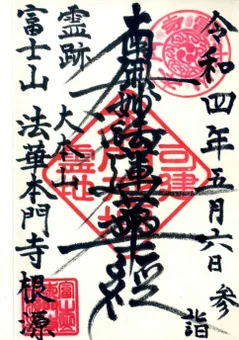 令和四年五月六日 参詣
南無妙法蓮華経
霊跡 大本山
富士山 法華本門寺根源